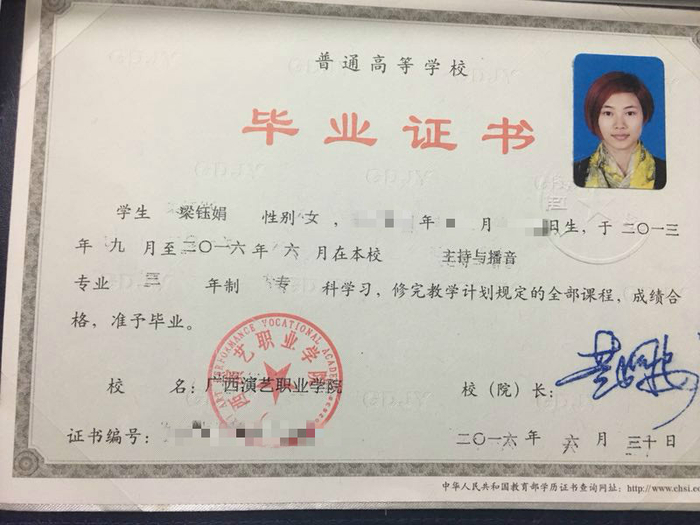 普通高等学校
毕业证书
学生 梁钰娟 性别 女， 年 月 日生，于二〇一三
年九月至二〇一六年六月在本校 主持与播音
专业 三 年制 专 科学习，修完教学计划规定的全部课程，成绩合
格，准予毕业。
校 名：广西演艺职业学院
校（院）长：
证书编号：
二〇一六年 六 月 三十日
中华人民共和国教育部学历证书查询网址：http://www.chsi.e